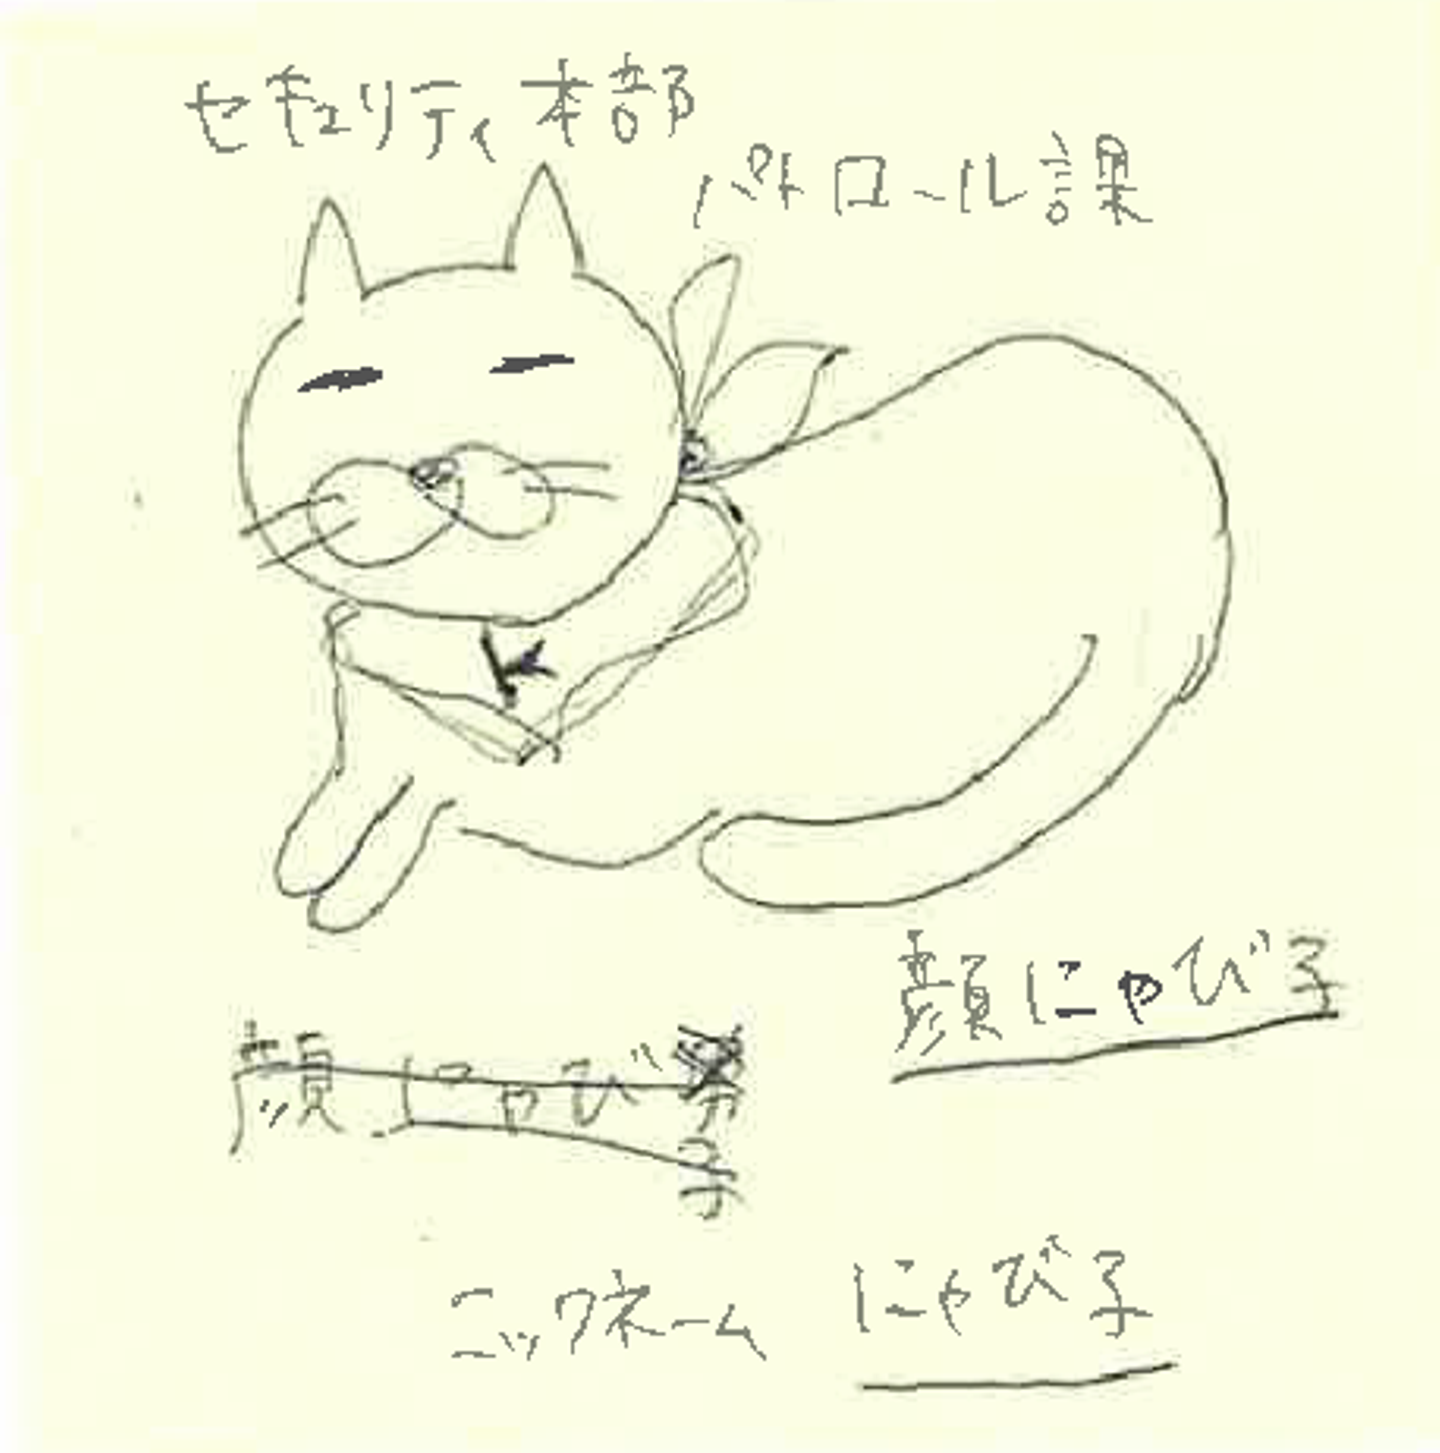 セキュリティ本部
パトロール課
K
顔にゃび子
顔にゃび子
ニックネーム にゃび子